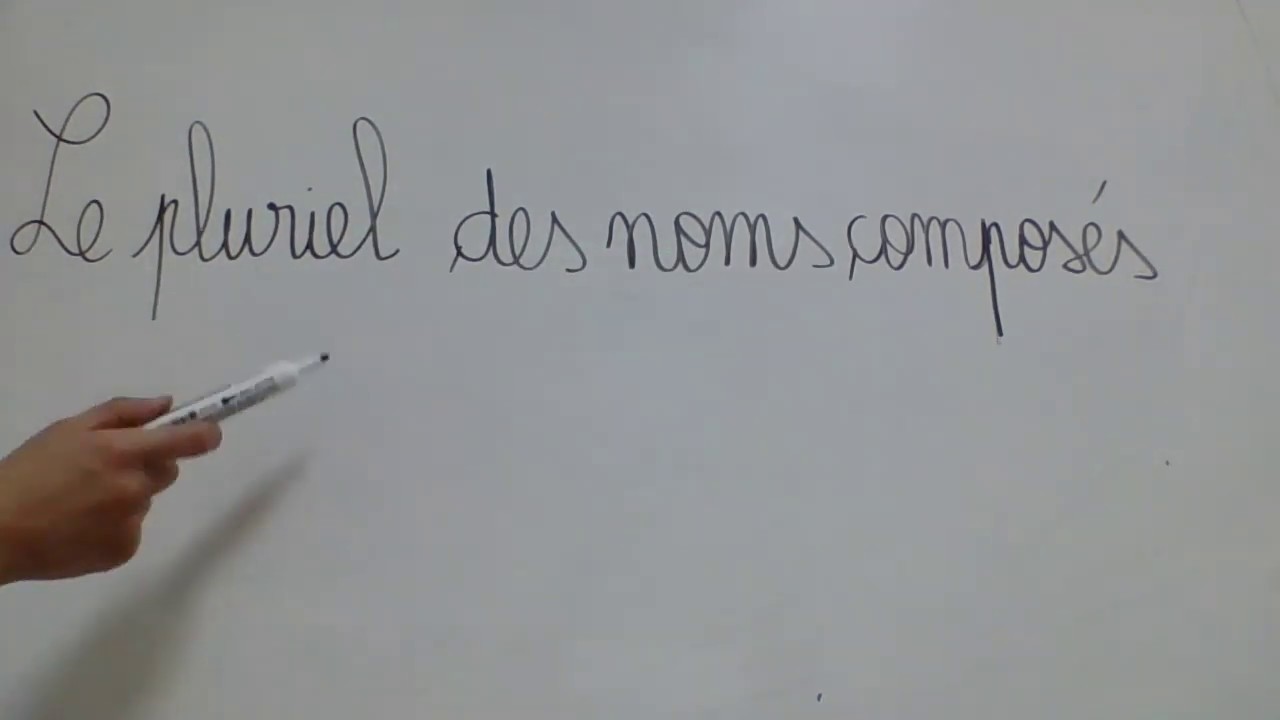 Le pluriel des noms composés